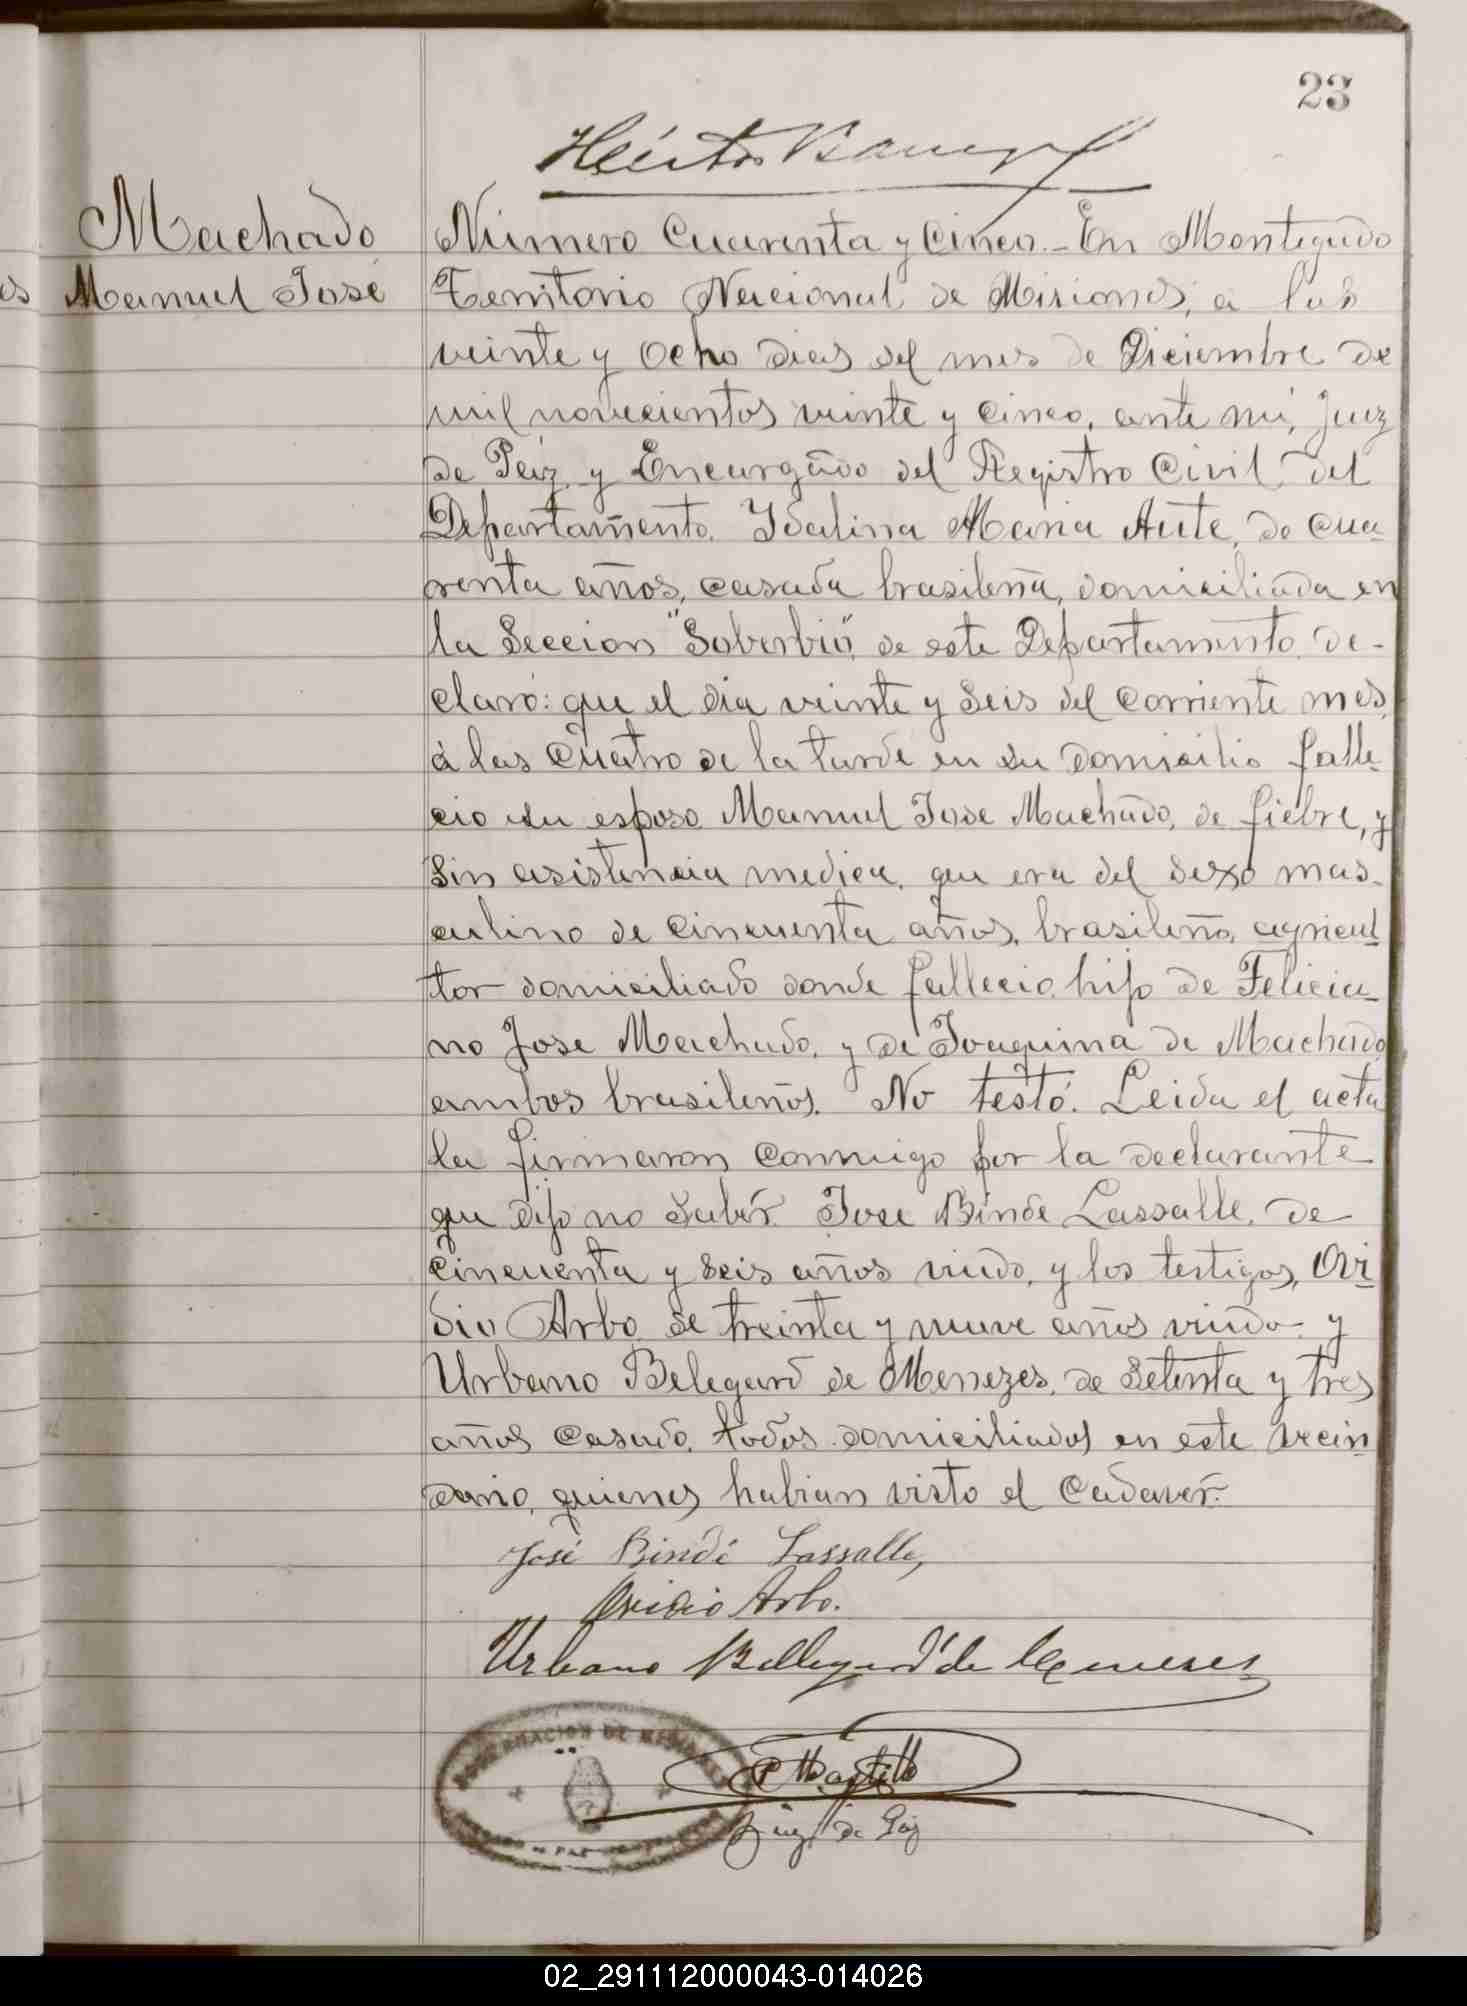 23
Héctor
Machado
Manuel José
Número Cuarenta y Cinco.- En Monteagudo
Territorio Nacional de Misiones, a los
veinte y Ocho dias del mes de Diciembre de
mil novecientos veinte y cinco, ante mi, Juez
de Paz y Encargado del Registro Civil del
Departamento. Idalina Maria Aute, de cua-
renta años, casada brasileña, domiciliada en
la Seccion "Soberbio", de este Departamento, de-
claró: que el dia veinte y Seis del corriente mes,
á las Cuatro de la tarde en su domicilio falle-
cio su esposo Manuel Jose Machado, de fiebre, y
Sin asistencia medica, que era del sexo mas-
culino de cincuenta años, brasileño, agricul-
tor domiciliado donde fallecio, hijo de Felicia-
no Jose Machado, y de Joaquina de Machado
ambos brasileños. No testó. Leida el acta
la firmaron conmigo por la declarante
que dijo no Saber. Jose Binde Lassalle, de
Cincuenta y seis años viudo, y los testigos, Ovi-
dio Arbo de treinta y nueve años viudo y
Urbano Belegard de Menezes, de Setenta y tres
años casado, todos domiciliados en este vecin
dario, quienes habian visto el Cadaver.
José Bindé Lassalle,
Ovidio Arbo.
Urbano Bellegard de Menezes
GOBERNACION DE
Juez de Paz
02_291112000043-014026